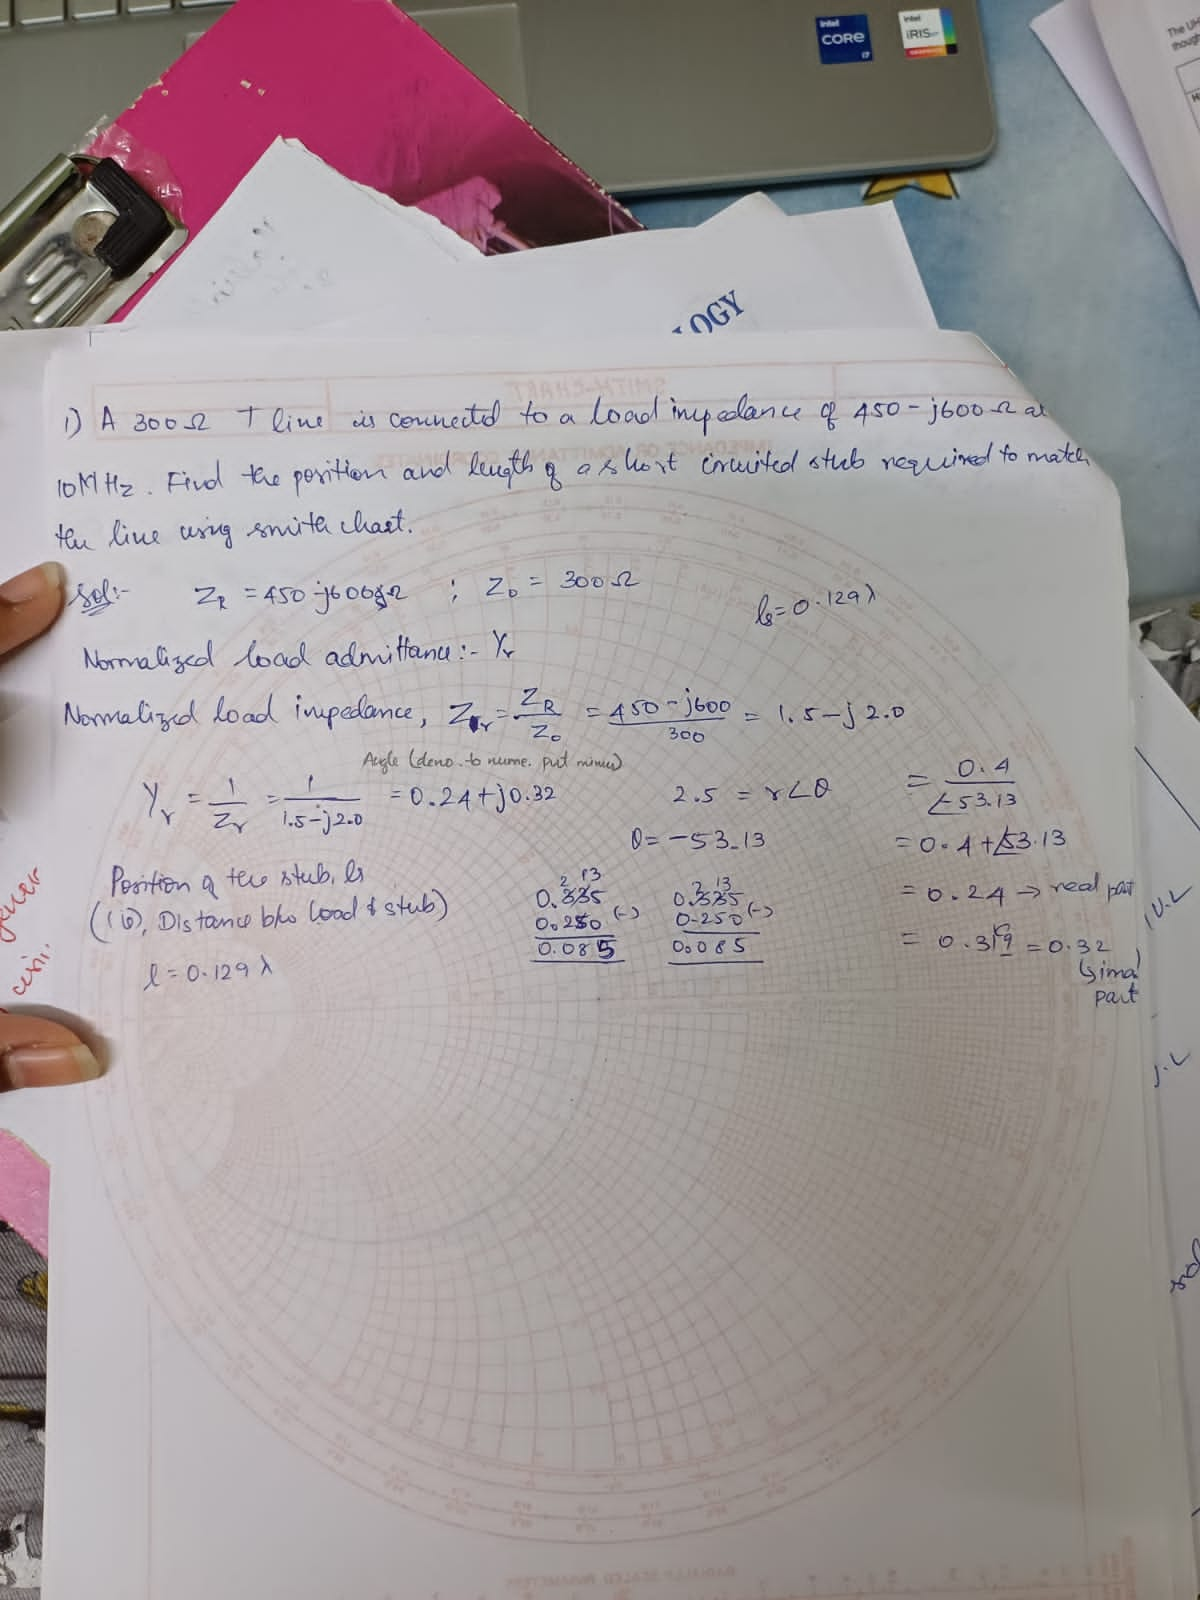 intel
CORE
i7
intel
iRIS
The UH
though
LOGY
SMITH-CHART
1) A 300Ω T line is connected to a load impedance of 450-j600Ω at
10MHz. Find the position and length of a short circuited stub required to match
the line using smith chart.
Sol:- ZR = 450-j600Ω ; Z0 = 300Ω
ls=0.129λ
Normalized load admittance:- Yr
Normalized load impedance, Zr = ZR/Z0 = 450-j600/300 = 1.5-j2.0
Angle (deno. to nume. put minus)
Yr = 1/Zr = 1/1.5-j2.0 = 0.24+j0.32
2.5 = r∠θ
θ= -53.13
= 0.4/∠-53.13
= 0.4+∠53.13
= 0.24 → real part
= 0.319 = 0.32
↳ima)
part
Position of the stub, ls
(ie), Distance b/w load & stub)
l = 0.129λ
2 13
0.335
0.250 (-)
0.085
2 13
0.335
0.250 (-)
0.085